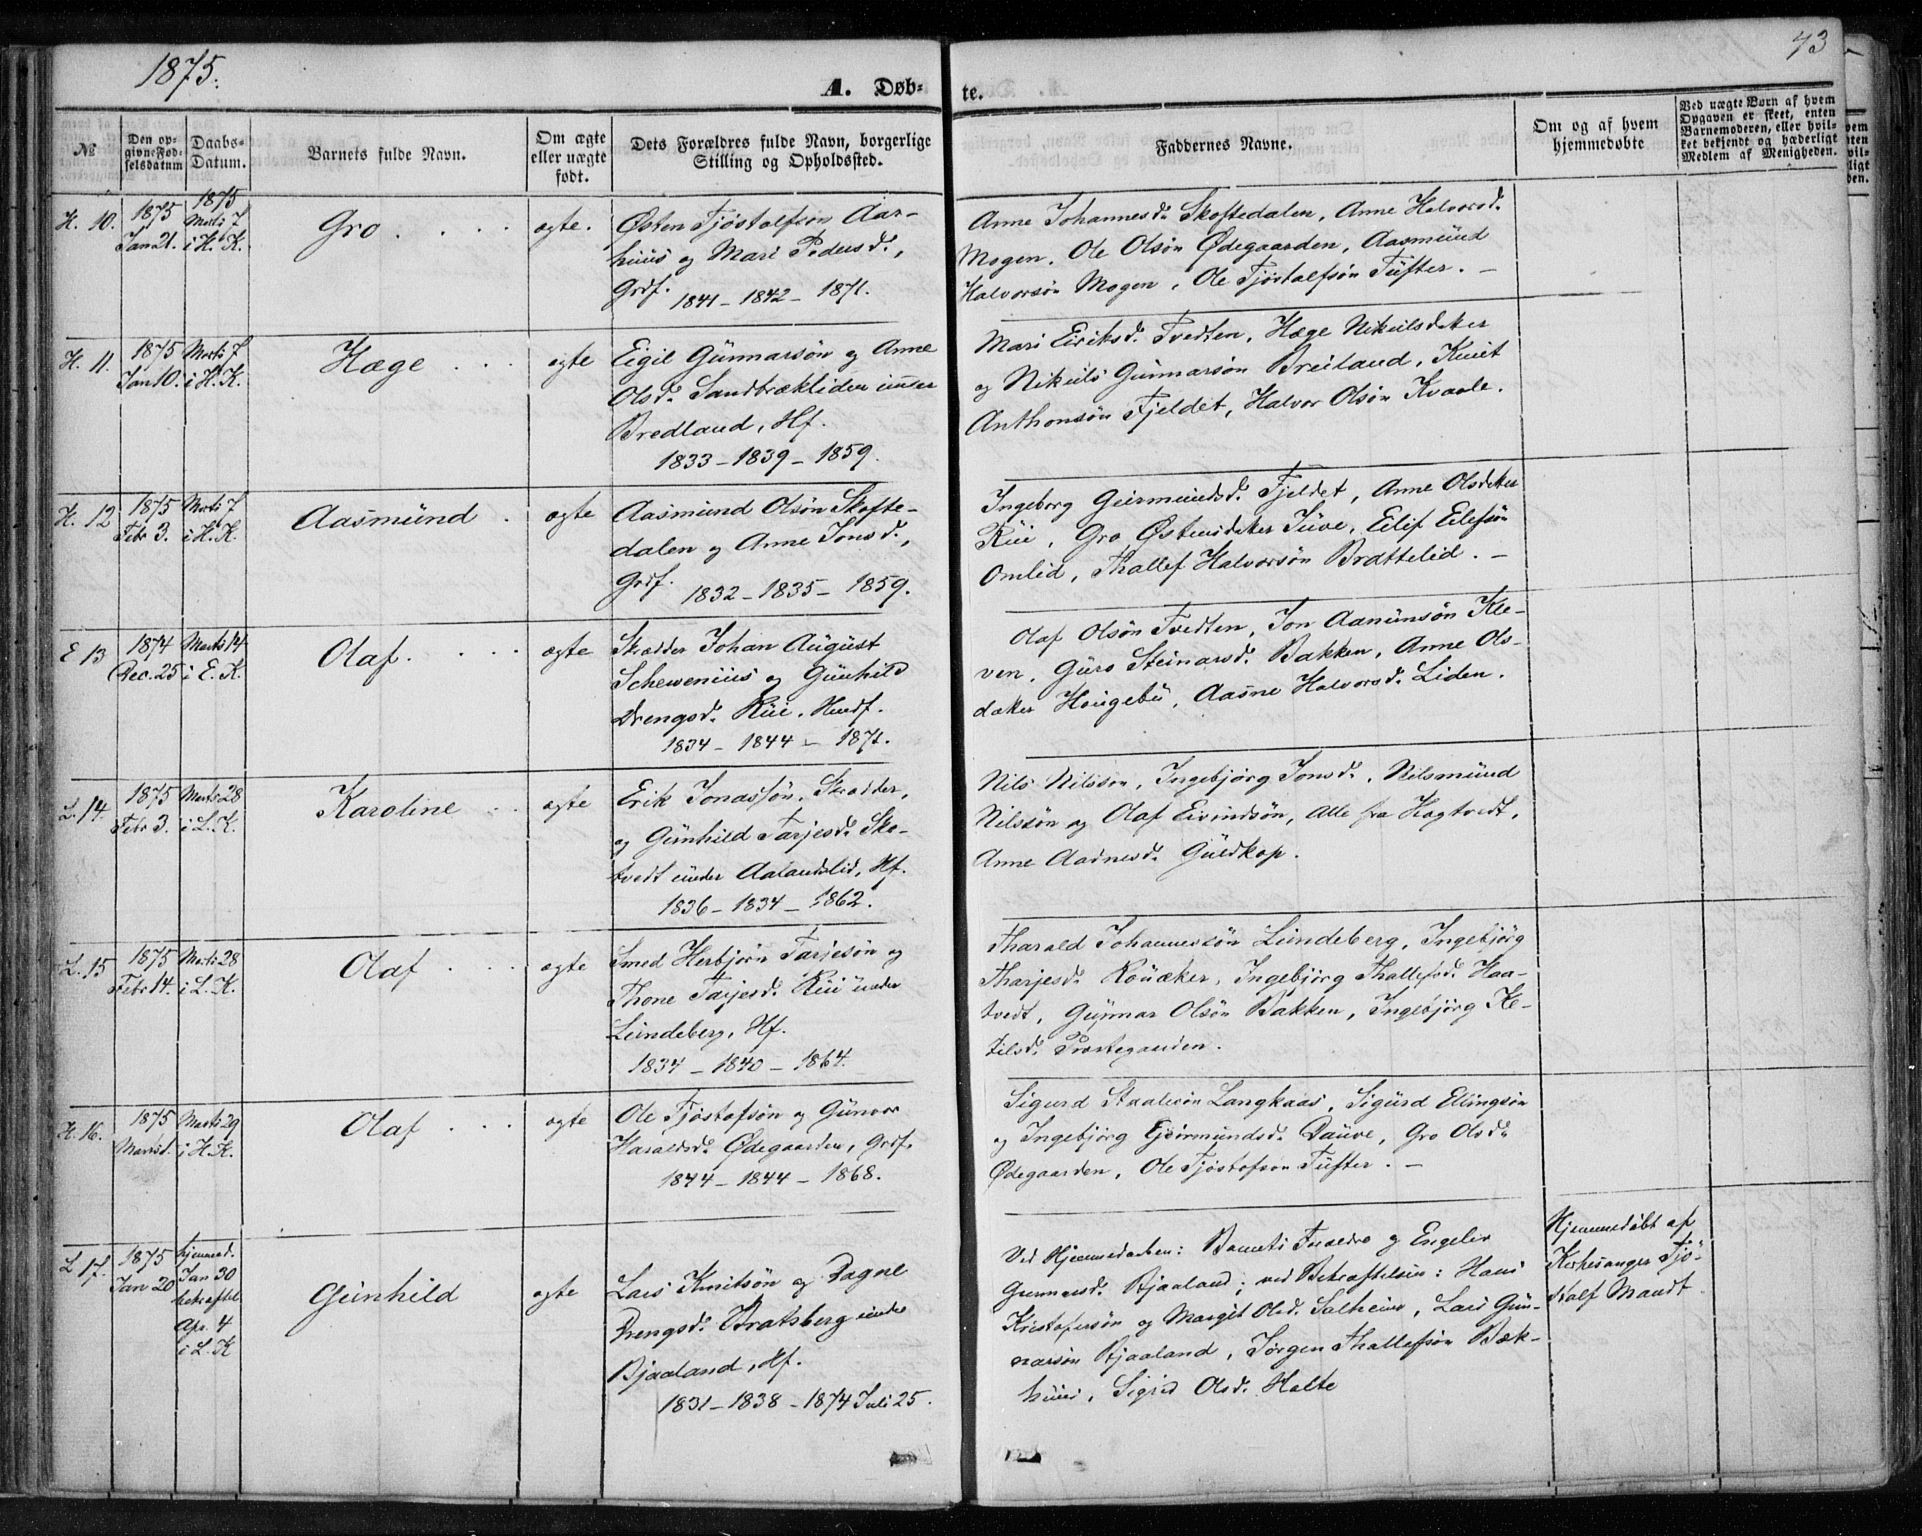 1875.
73
A. Døb-
te.
№
Den op-
givne Fød-
selsdatum
Daabs-
Datum.
Barnets fulde Navn.
Om ægte
eller uægte
født.
Dets Forældres fulde Navn, borgerlige
Stilling og Opholdssted.
Faddernes Navne.
Om og af hvem
hjemmedøbte
Ved uægte Børn af hvem
Opgaven er skeet, enten
Barnemoderen, eller hvil-
ket bekjendt og hæderligt
Medlem af Menigheden.
H. 10.
1875
Jan 21.
1875
Marts 7
i H. K.
Gro
ægte.
Østen Tjøstolfsen Aar-
huus og Mari Pedersd.,
Grdf. 1841 - 1842 - 1871.
Anne Johannesd. Skoftedalen, Anne Halvorsd.
Mogen, Ole Olsøn Ødegaarden, Aasmund
Halvorsøn Mogen, Ole Tjøstolfsøn Tufter. -
H. 11.
1875
Jan 10.
Marts 7
i H. K.
Hæge
ægte
Eigil Gunnarsøn og Anne
Olsd. Sandbrækliden under
Bredland, Hf.
1833 - 1839 - 1859.
Mari Eiriksd. Tvedten, Hæge Nikulsdaker
og Nikuls Gunnarsøn Breiland, Knut
Anthonsøn Fjeldet, Halvor Olsøn Kvaale.
H. 12
1875
Febr 3.
Marts 7
i H. K.
Aasmund
ægte
Aasmund Olsøn Skofte-
dalen og Anne Jonsd.,
Grdf. 1832 - 1835 - 1859.
Ingeborg Geirmundsd. Fjeldet, Anne Olsdaker
Rui, Gro Østensdaker Juve, Eilif Eilefsøn
Omlid, Thallef Halvorsøn Brattelid. -
E 13
1874
Dec. 25
Marts 14
i E. K.
Olaf.
ægte
Skrædder Johan August
Schewenius og Gunhild
Drengsd. Rui, Husf.
1834 - 1844 - 1871.
Olaf Olsøn Tvedten, Jon Aanunsøn Kle-
ven, Guro Steinarsd. Bakken, Anne Ols-
daker Hougebu, Aasne Halvorsd. Liden.
L. 14.
1875
Febr 3.
Marts 28
i L. K.
Karoline
ægte
Erik Jonassøn, Skrædder,
og Gunhild Tarjesd. Sko-
tvedt under Aalandslid, Hf.
1836 - 1834 - 1862.
Nils Nilssøn, Ingebjørg Jonsd., Nilsmund
Nilssøn og Olaf Eivindsøn, alle fra Hogtvedt,
Anne Aadnesd. Guldkop.
L. 15
1875
Febr 14.
Marts 28
i L. K.
Olaf
ægte
Smed Herbjørn Tarjesøn og
Thone Tarjesd. Rui under
Lundeberg, Hf.
1834 - 1840 - 1864.
Tharald Johannessøn Lundeberg, Ingebjørg
Tharjesd. Rouæker, Ingebjørg Thallefsd. Haa-
tvedt, Gunnar Olsøn Bakken, Ingebjørg Ke-
tilsd. Præstegaarden.
H. 16.
1875
Marts 1.
Marts 29
i H. K.
Olaf
ægte
Ole Tjøstofsøn og Gunvor
Haraldsd. Ødegaarden, Grdf.
1844 - 1844 - 1868.
Sigurd Staalesøn Langkaas, Sigurd Ellingsøn
og Ingebjørg Gjeirmundsd. Dauve, Gro Olsd.
Ødegaarden, Ole Tjøstofsøn Tufter. -
L 17.
1875
Jan 20
hjemmed.
Jan 30
bekræftet
Apr. 4
i L. K
Gunhild
ægte
Lars Knutsøn og Dagne
Drengsd. Bratsberg under
Bjaaland, Hf.
1831 - 1838 - 1874 Juli 25.
Ved Hjemmedaaben: Barnets Forældre og Engelev
Gunnarsd. Bjaaland; ved Bekræftelsen: Hans
Kristofersøn og Margit Olsd. Solheim, Lars Gun-
narsøn Bjaaland, Jørgen Thallefsøn Bæk-
huus, Sigrid Olsd. Holte
Hjemmedøbt af
Kirkesanger Tjø-
stolf Mandt